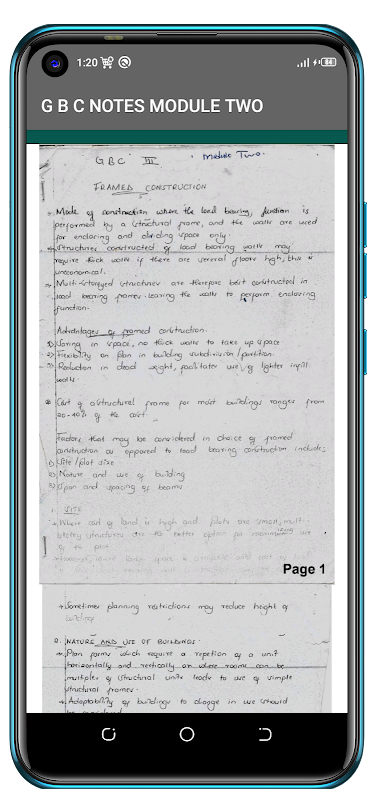 1:20
84
G B C NOTES MODULE TWO
GBC III
Module Two.
FRAMED CONSTRUCTION
Mode of construction where the load bearing function is
performed by a structural frame, and the walls are used
for enclosing and dividing space only.
Structures constructed of load bearing walls may
require thick walls if there are several floors high, this is
uneconomical.
Multi-storeyed structures are therefore best constructed in
load bearing frames leaving the walls to perform enclosing
function.
Advantages of framed construction.
1) Saving in space, no thick walls to take up space
2) Flexibility on plan in building subdivision/partition.
3) Reduction in dead weight, facilitates use of lighter infill
walls.
Cost of structural frame for most buildings ranges from
20-40% of the cost.
Factors that may be considered in choice of framed
construction as opposed to load bearing construction include;
1) Site/plot size
2) Nature and use of building
3) Span and spacing of beams
1. SITE
Where cost of land is high and plots are small, multi-
storey structures are the better option for maximum use
of the plot
Page 1
Sometimes planning restrictions may reduce height of
buildings
2. NATURE AND USE OF BUILDINGS.
Plan forms which require a repetion of a unit
horizontally and vertically or where rooms can be
multiples of structural units leads to use of simple
structural frames.
Adaptability of buildings to change in use should
be considered